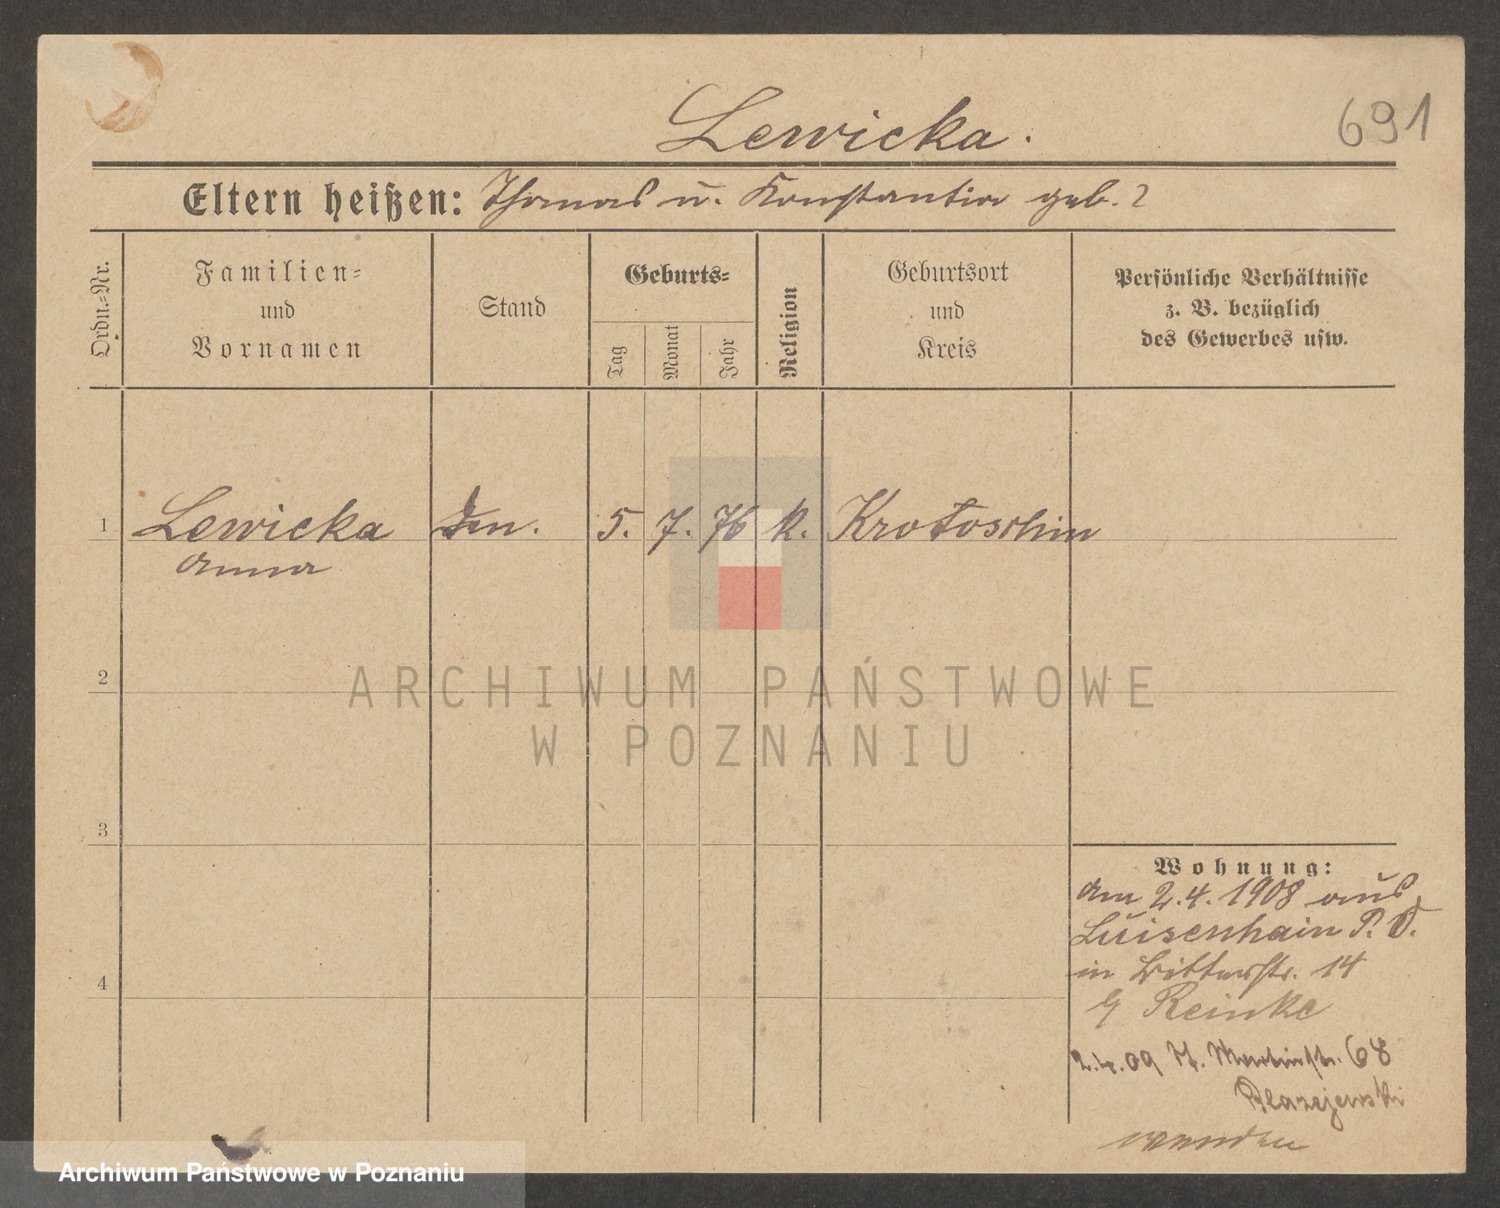 Lewicka.
691
Eltern heißen: Thomas u. Konstantia geb. ?
Ordn.-Nr.
Familien-
und
Vornamen
Stand
Geburts-
Tag
Monat
Jahr
Religion
Geburtsort
und
Kreis
Persönliche Verhältnisse
z. B. bezüglich
des Gewerbes usw.
1 Lewicka 5. 7. 76 k. Krotoschin
Anna
2
ARCHIWUM PAŃSTWOWE
W POZNANIU
3
Wohnung:
am 2.4.1908 aus
Luisenhain P. O.
in Ritterstr. 14
4
b/ Reinke
2.4.09 St. Martinstr. 68
Blazejewski
wenden
Archiwum Państwowe w Poznaniu